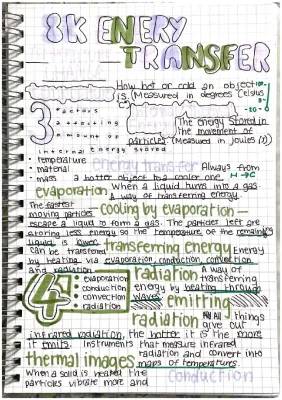 8K ENERY
TRANSFER
How hot or cold an object
is. (Measured in degrees Celsius
The energy stored in
the movement of
particles (Measured in joules (J))
3 factors
affecting
amount of
internal energy stored
• temperature
• material
• mass
energy transfer
Always from
a hotter object to a cooler one. H→C
evaporation When a liquid turns into a gas.
A way of transferring energy.
The fastest
moving particles cooling by evaporation—
escape a liquid to form a gas. The particles left are
storing less energy so the temperature of the remaining
liquid is lower. transferring energy Energy
can be transferred
by heating, via evaporation, conduction, convection
and radiation
4
• evaporation
conduction
convection
radiation
radiation A way of
transferring
energy by heating through
waves. emitting
radiation All things
give out
infrared radiation, the hotter it is the more
it emits. Instruments that measure infrared
radiation and convert into
thermal images maps of temperatures.
When a solid is heated the
particles vibrate more and conduction